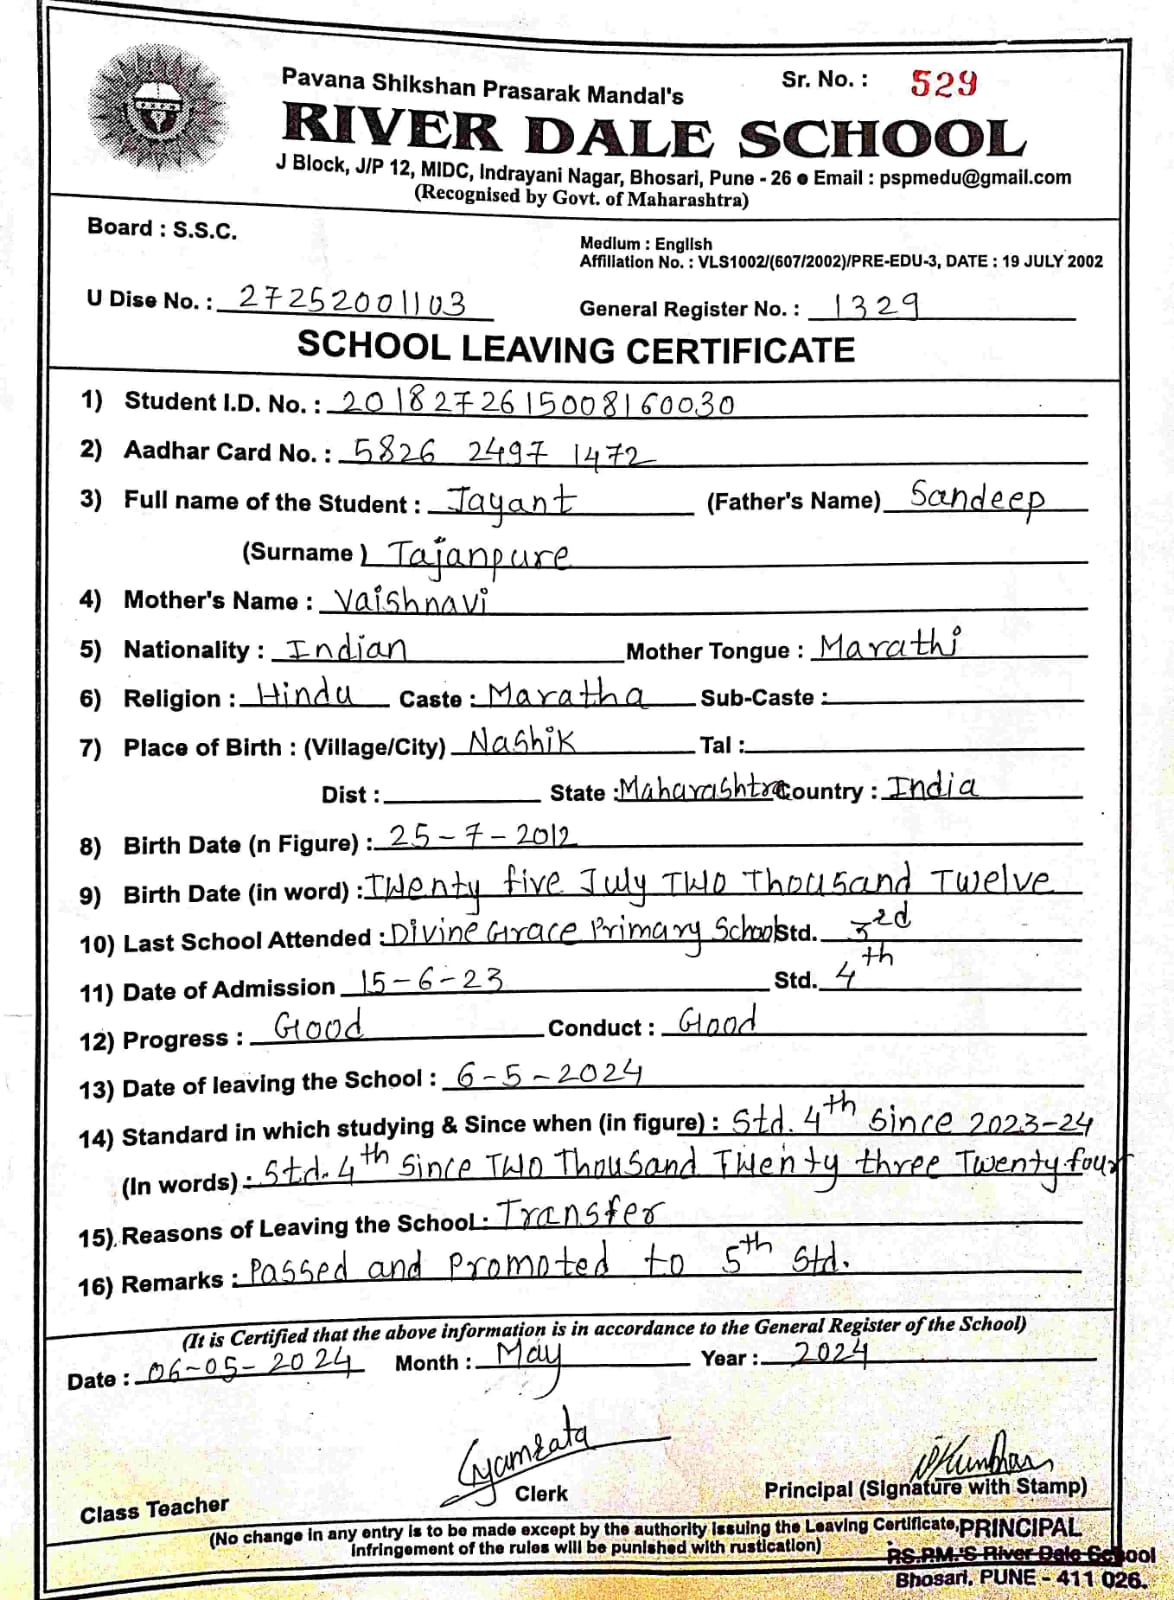 Pavana Shikshan Prasarak Mandal's Sr. No. : 529
RIVER DALE SCHOOL
J Block, J/P 12, MIDC, Indrayani Nagar, Bhosari, Pune - 26 ● Email : pspmedu@gmail.com
(Recognised by Govt. of Maharashtra)
Board : S.S.C.
Medium : English
Affiliation No. : VLS1002/(607/2002)/PRE-EDU-3, DATE : 19 JULY 2002
U Dise No. : 27252001103 General Register No. : 1329
SCHOOL LEAVING CERTIFICATE
1) Student I.D. No. : 2018272615008160030
2) Aadhar Card No. : 5826 2497 1472
3) Full name of the Student : Jayant (Father's Name) Sandeep
(Surname ) Tajanpure
4) Mother's Name : Vaishnavi
5) Nationality : Indian Mother Tongue : Marathi
6) Religion : Hindu Caste : Maratha Sub-Caste :
7) Place of Birth : (Village/City) Nashik Tal :
Dist : State : Maharashtra Country : India
8) Birth Date (n Figure) : 25-7-2012
9) Birth Date (in word) : Twenty five July Two Thousand Twelve
10) Last School Attended : Divine Grace Primary School Std. 3rd
11) Date of Admission 15-6-23 Std. 4th
12) Progress : Good Conduct : Good
13) Date of leaving the School : 6-5-2024
14) Standard in which studying & Since when (in figure) : Std. 4th Since 2023-24
(In words) : Std. 4th Since Two Thousand Twenty three Twenty four
15) Reasons of Leaving the School : Transfer
16) Remarks : Passed and Promoted to 5th Std.
(It is Certified that the above information is in accordance to the General Register of the School)
Date : 06-05-2024 Month : May Year : 2024
Class Teacher Clerk Principal (Signature with Stamp)
(No change in any entry is to be made except by the authority issuing the Leaving Certificate,
Infringement of the rules will be punished with rustication)
PRINCIPAL
P.S.P.M.'S River Dale School
Bhosari, PUNE - 411 026.